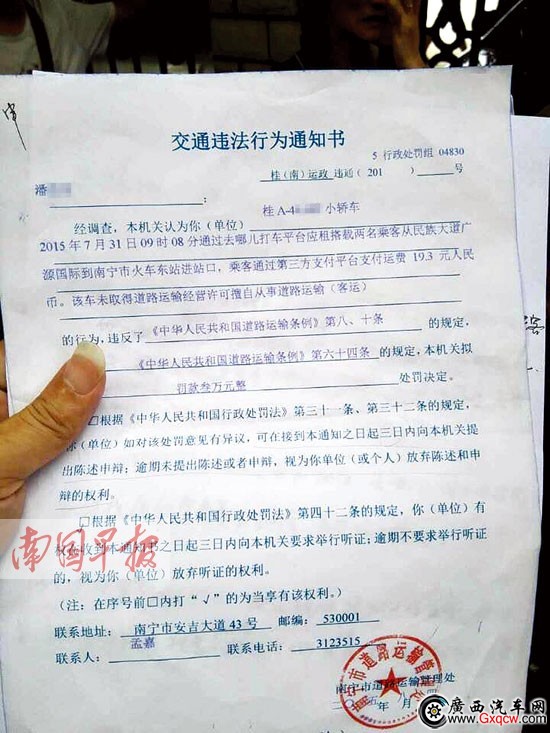 交通违法行为通知书
5 行政处罚组 04830
桂（南）运政 违通（201 ）号
潘 ：
桂A-4 小轿车
经调查，本机关认为你（单位）
2015 年 7 月 31 日 09 时 08 分通过去哪儿打车平台应租搭载两名乘客从民族大道广
源国际到南宁市火车东站进站口，乘客通过第三方支付平台支付运费 19.3 元人民
币。该车未取得道路运输经营许可擅自从事道路运输（客运）
的行为，违反了《中华人民共和国道路运输条例》第八、十条 的规定，
《中华人民共和国道路运输条例》第六十四条 的规定，本机关拟
罚款叁万元整 处罚决定。
□根据《中华人民共和国行政处罚法》第三十一条、第三十二条的规定，
你（单位）如对该处罚意见有异议，可在接到本通知之日起三日内向本机关提
出陈述申辩；逾期未提出陈述或者申辩，视为你单位（或个人）放弃陈述和申
辩的权利。
□根据《中华人民共和国行政处罚法》第四十二条的规定，你（单位）有
权在收到本通知书之日起三日内向本机关要求举行听证；逾期不要求举行听证
的，视为你（单位）放弃听证的权利。
（注：在序号前□内打“√”的为当享有该权利。）
联系地址： 南宁市安吉大道 43 号 邮编： 530001
联系人： 孟嘉 联系电话： 3123515
南宁市道路运输管理处
南国早报
廣西汽车网
www.Gxqcw.com